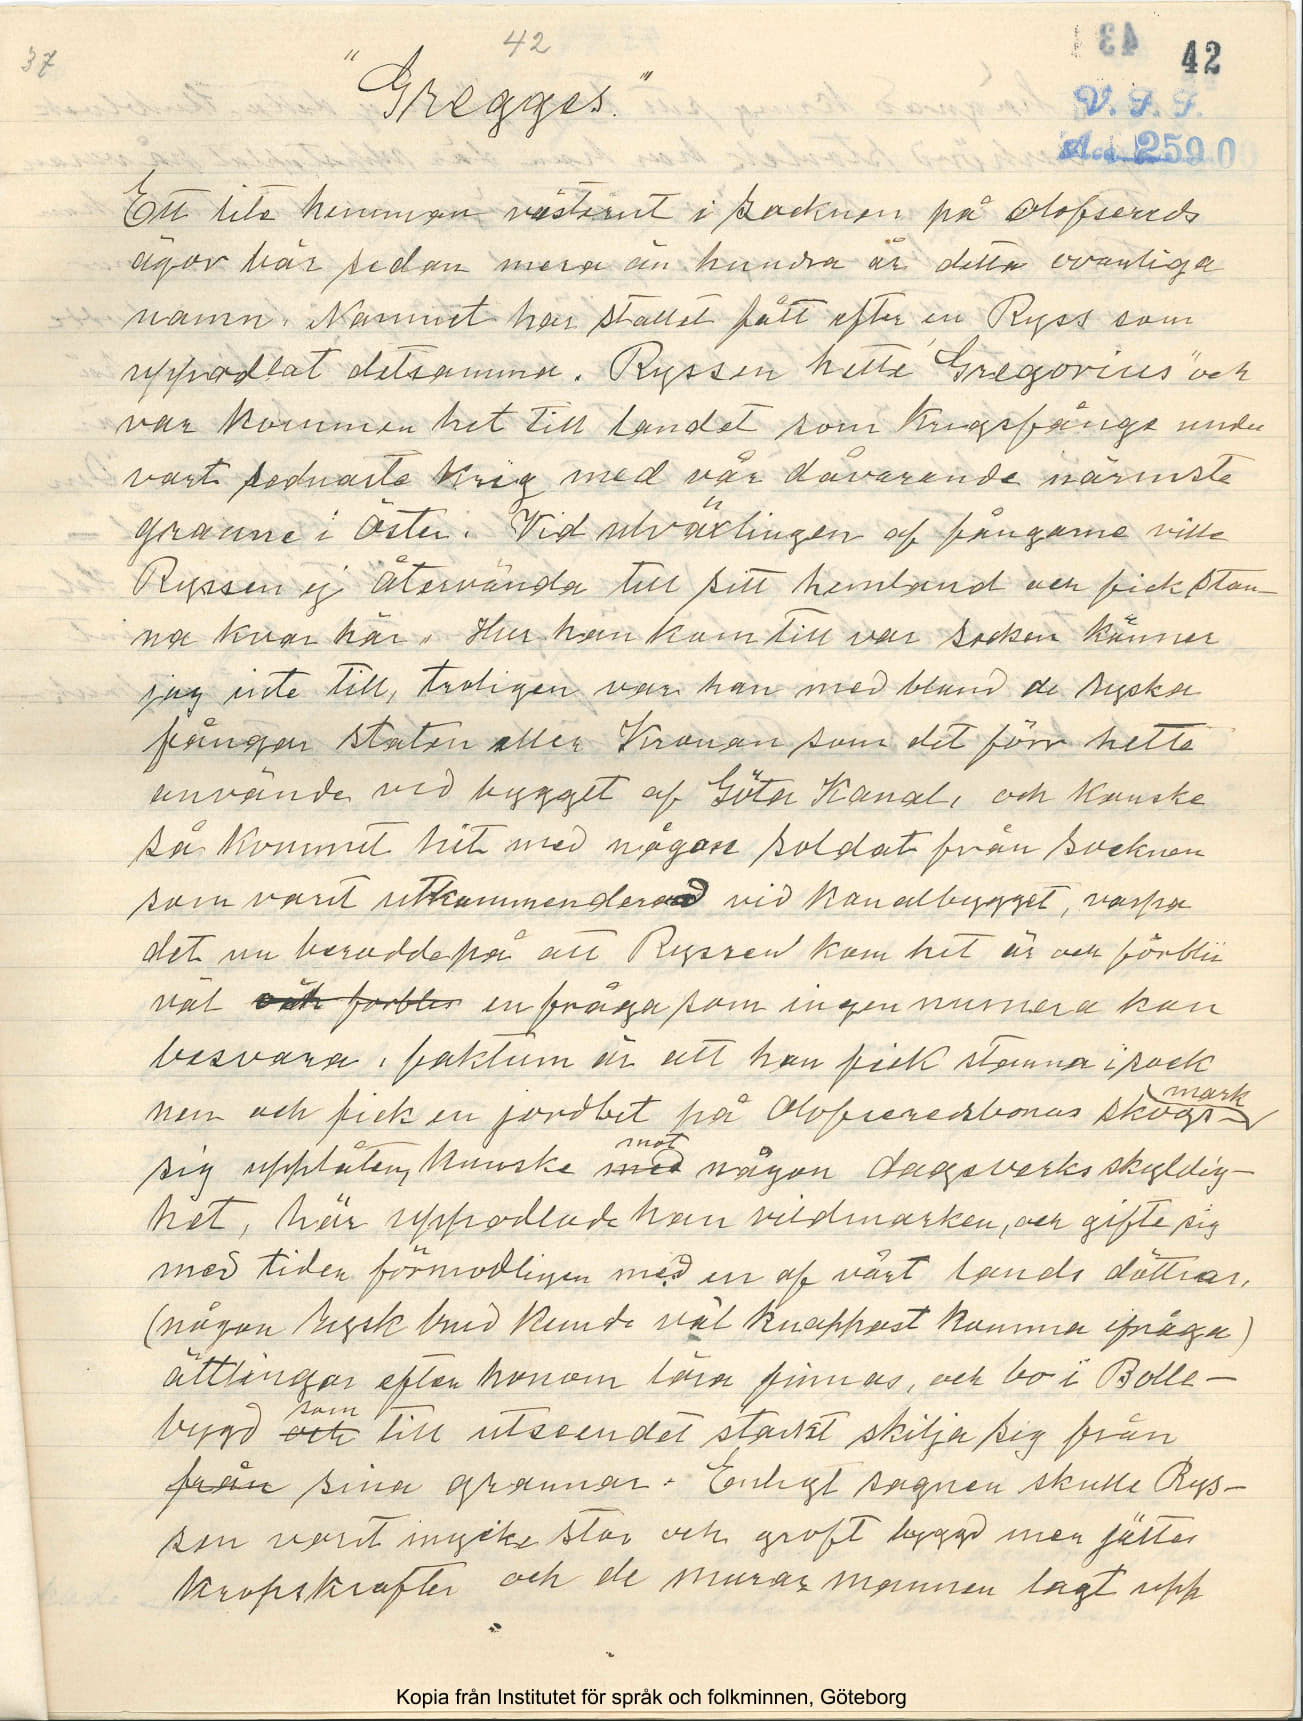 37
42
42
"Gregges."
V. S. S.
Acc 2590
Ett lite hemman västerut i socknen på Olofsereds
ägor bär sedan mera än hundra år detta ovanliga
namn. Namnet har stället fått efter en Ryss som
uppodlat detsamma. Ryssen hette "Gregorius" och
var kommen hit till landet som Krigsfånge under
vart sednaste Krig med vår dåvarande närmste
granne i Öster. Vid utväxlingen af fångarne ville
Ryssen ej återvända till sitt hemland och fick stan-
na kvar här. Hur han kom till var socken känner
jag inte till, troligen var han med bland de Ryska
fångar staten eller Kronan som det förr hette
använde vid bygget af Göta Kanal, och Kanske
så kommit hit med någon soldat från socknen
som varit utkommenderad vid Kanalbygget, varpå
det nu berodde på att Ryssen kom hit är och förblir
väl och forbler en fråga som ingen numera kan
besvara, faktum är att han fick stanna i sock
nen och fick en jordbit på Olofseredsbonas skogs-
mark
sig upplåten, kanske med någon dagsverksskyldig-
mot
het, här uppodlade han vildmarken, och gifte sig
med tiden förmodligen med en af vårt lands döttrar,
(någon Rysk brud kunde väl knappast komma ifråga)
ättlingar efter honom lära finnas, och bo i Bolle-
bygd och till utseendet starkt skilja sig från
som
från sina grannar. Enligt sagnen skulle Rys-
sen varit mycke stor och groft byggd men jättes
kropskrafter och de murar mannen lagt upp
Kopia från Institutet för språk och folkminnen, Göteborg